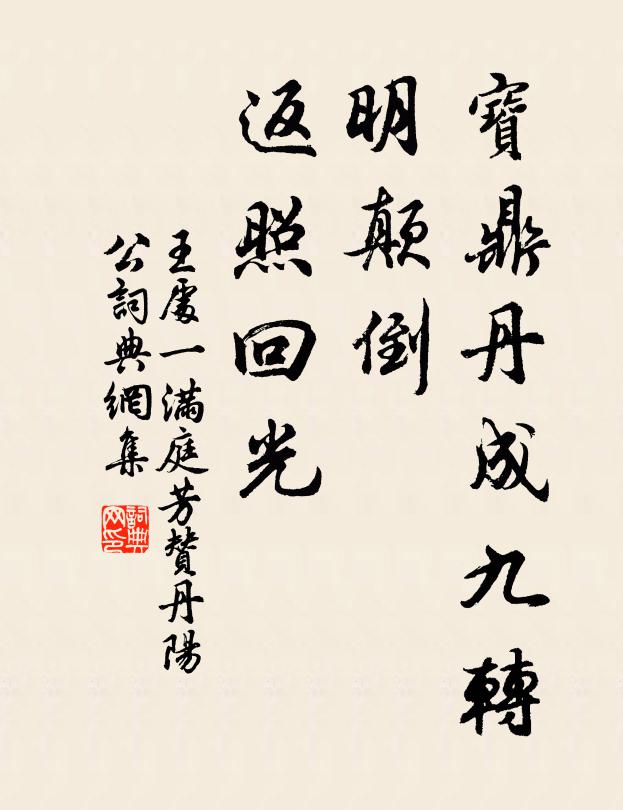 寶鼎丹成九轉
明顛倒
返照回光
王處一滿庭芳贊丹陽
公詞典網集
詞典网印